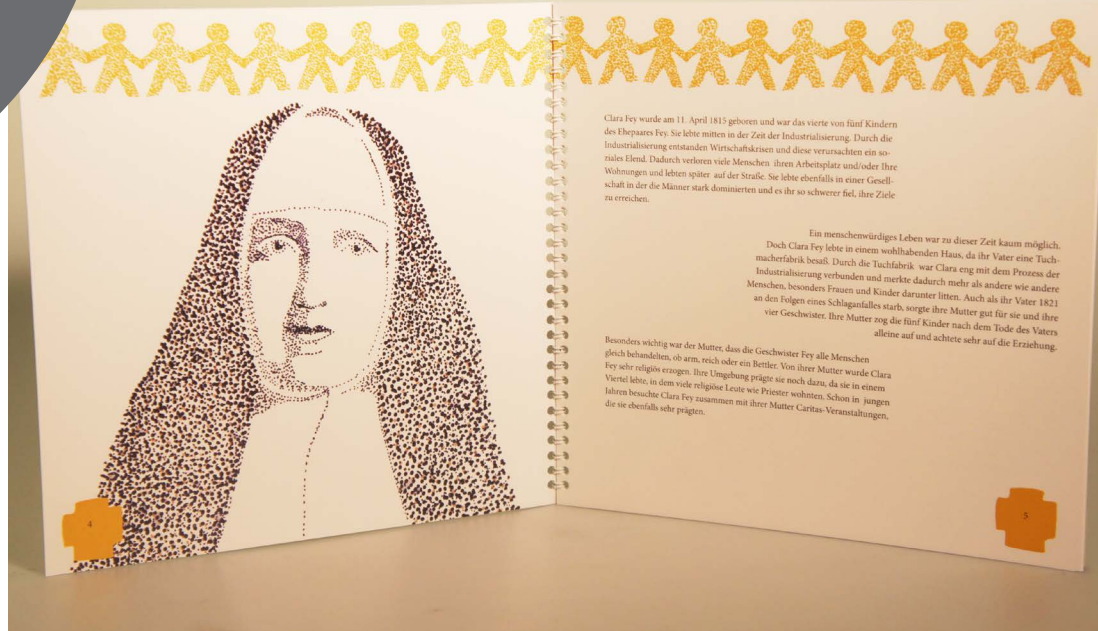 Clara Fey wurde am 11. April 1815 geboren und war das vierte von fünf Kindern
des Ehepaares Fey. Sie lebte mitten in der Zeit der Industrialisierung. Durch die
Industrialisierung entstanden Wirtschaftskrisen und diese verursachten ein so-
ziales Elend. Dadurch verloren viele Menschen ihren Arbeitsplatz und/oder Ihre
Wohnungen und lebten später auf der Straße. Sie lebte ebenfalls in einer Gesell-
schaft in der die Männer stark dominierten und es ihr so schwerer fiel, ihre Ziele
zu erreichen.
Ein menschenwürdiges Leben war zu dieser Zeit kaum möglich.
Doch Clara Fey lebte in einem wohlhabenden Haus, da ihr Vater eine Tuch-
macherfabrik besaß. Durch die Tuchfabrik war Clara eng mit dem Prozess der
Industrialisierung verbunden und merkte dadurch mehr als andere wie andere
Menschen, besonders Frauen und Kinder darunter litten. Auch als ihr Vater 1821
an den Folgen eines Schlaganfalles starb, sorgte ihre Mutter gut für sie und ihre
vier Geschwister. Ihre Mutter zog die fünf Kinder nach dem Tode des Vaters
alleine auf und achtete sehr auf die Erziehung.
Besonders wichtig war der Mutter, dass die Geschwister Fey alle Menschen
gleich behandelten, ob arm, reich oder ein Bettler. Von ihrer Mutter wurde Clara
Fey sehr religiös erzogen. Ihre Umgebung prägte sie noch dazu, da sie in einem
Viertel lebte, in dem viele religiöse Leute wie Priester wohnten. Schon in jungen
Jahren besuchte Clara Fey zusammen mit ihrer Mutter Caritas-Veranstaltungen,
die sie ebenfalls sehr prägten.
4
5